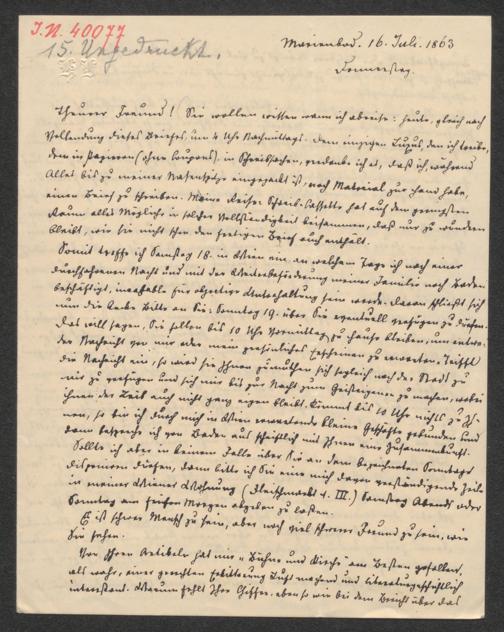 I.N. 40077
15. Ungedruckt.
Marienbad. 16. Juli. 1863
Donnerstag.
Theurer Freund! Sie wollen wissen wann ich abreise: heute, gleich nach
Vollendung dieses Briefes, um 4 Uhr Nachmittags. Dem einzigen Luxus, den ich treibe,
dem in Papieren (ohne Coupons), in Schreibsachen, verdanke ich es, daß ich, während
Alles bis zu meiner Nasenspitze eingepackt ist, noch Material zur Hand habe,
einen Brief zu schreiben. Meine Reise-Schreib-Cassette hat auf dem geringsten
Raum alles Mögliche in solcher Vollständigkeit beisammen, daß nur zu wundern
bleibt, wie sie nicht schon den fertigen Brief auch enthält.
Somit treffe ich Samstag 18. in Wien ein, an welchem Tage ich nach einer
durchfahrenen Nacht und mit der Weiterbeförderung meiner Familie nach Baden
beschäftigt, für Unterhaltung sein werde. Daran schließt sich
nun die Bitte an Sie: Sonntag 19. über Sie eventuell verfügen zu dürfen.
Das will sagen, Sie sollen bis 10 Uhr Vormittag zu Hause bleiben, um entwe-
der Nachricht von mir oder mein persönliches Erscheinen zu erwarten. Trifft
die Nachricht ein, so wird sie Ihnen zumuthen sich sogleich nach der Stadt zu
mir zu verfügen und sich mir bis zur Nacht zum zu machen, wobei
Ihnen der Leib auch nicht ganz eigen bleibt. Kommt bis 10 Uhr nichts zu Ih-
nen, so bin ich durch mich in Wien erwartende kleine Geschäfte gebunden und
dann bespreche ich von Baden aus schriftlich mit Ihnen eine Zusammenkunft.
Sollte ich aber in keinem Falle über Sie an dem bezeichneten Sonntage
disponiren dürfen, dann bitte ich Sie eine mich davon verständigende Zeile
in meiner Wiener Wohnung (Fleischmarkt 4. III.) Samstag Abends oder
Sonntag am frühen Morgen abgeben zu lassen.
Es ist schwer Mensch zu sein, aber noch viel schwerer Freund zu sein, wie
Sie sehen.
Von Ihren Artikeln hat mir "Bühne und Kirche" am Besten gefallen,
als wahr, einer gerechten Erbitterung Luft machend und literaturgeschichtlich
interessant. Warum fehlt Ihre Chiffer, eben so wie bei dem Bericht über das